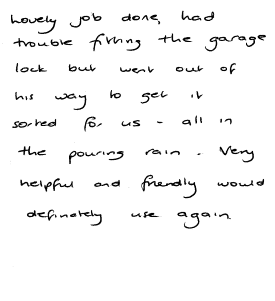 Lovely job done, had
trouble fitting the garage
lock but went out of
his way to get it
sorted for us - all in
the pouring rain. Very
helpful and friendly would
definately use again